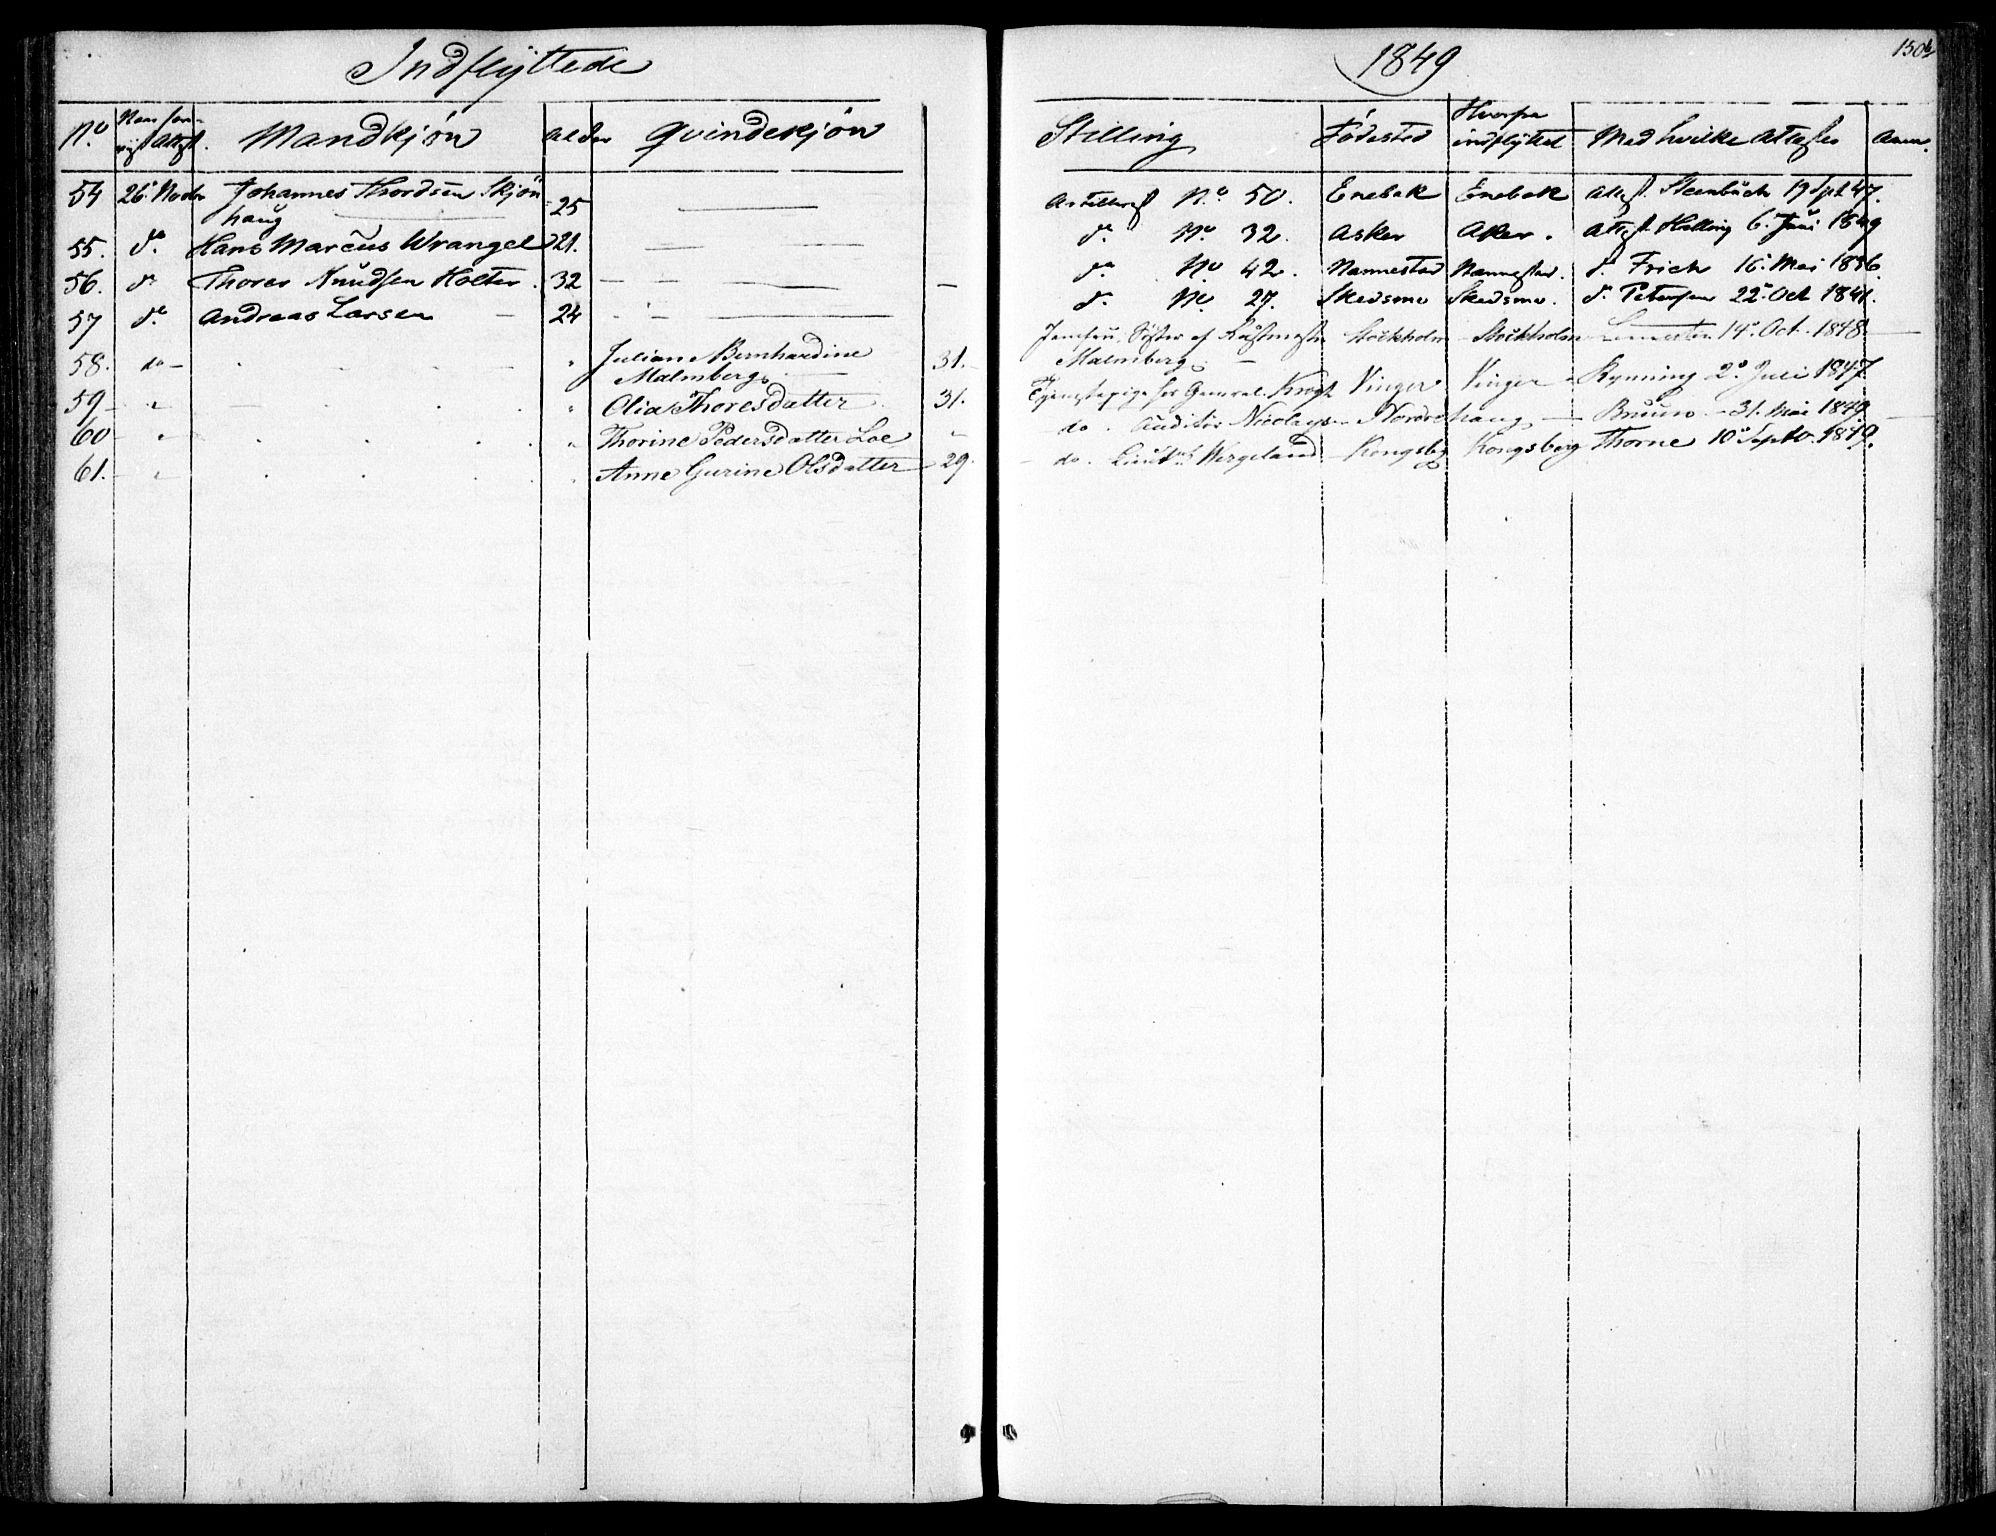 Indflÿttede
1849
150b
No
Naar fore-
vist Attest.
Mandkjön
Alder
Qvindekjön
Stilling
Födested
Hvorfra
indflÿttet
Med hvilke Attester
Anm.
54 26. Novbr Johannes Thordsen Skjön 25 Artillerist No. 50. Enebak Enebak Attest. Steenbüch 19 Spt 47.
haug
55. do. Hans Marcus Wrangel 21. do. No. 32. Asker Asker. Attest. Halling 6. Juni 1849
56. do Thorer Knudsen Holter. 32 do. No 42. Nannestad Nannestad. do. Frich 16. Mai 1836.
57 do. Andreas Larsen 24 do. No. 27. Skedsmo Skedsmo. do. Petersen 22. Oct 1841.
58. do - " Juliane Bernhardine 31. Jomfru, Söster af Stockholm Stockholm 14. Oct. 1848.
Malmberg. Malmberg.
59 " " Olia Thoresdatter 31. Tjenestepige hos General Krogh Vinger Vinger Rynning 2. Juli 1847.
60 " " Thorine Pedersdatter Loe " do. Auditör Nicolaysen Nordrehaug Bruun 31. Mai 1849
61. " " Anne Gurine Olsdatter 29. do. Lieutnt Wergeland Kongsbg Kongsberg Thorne 10 Septbr. 1849.